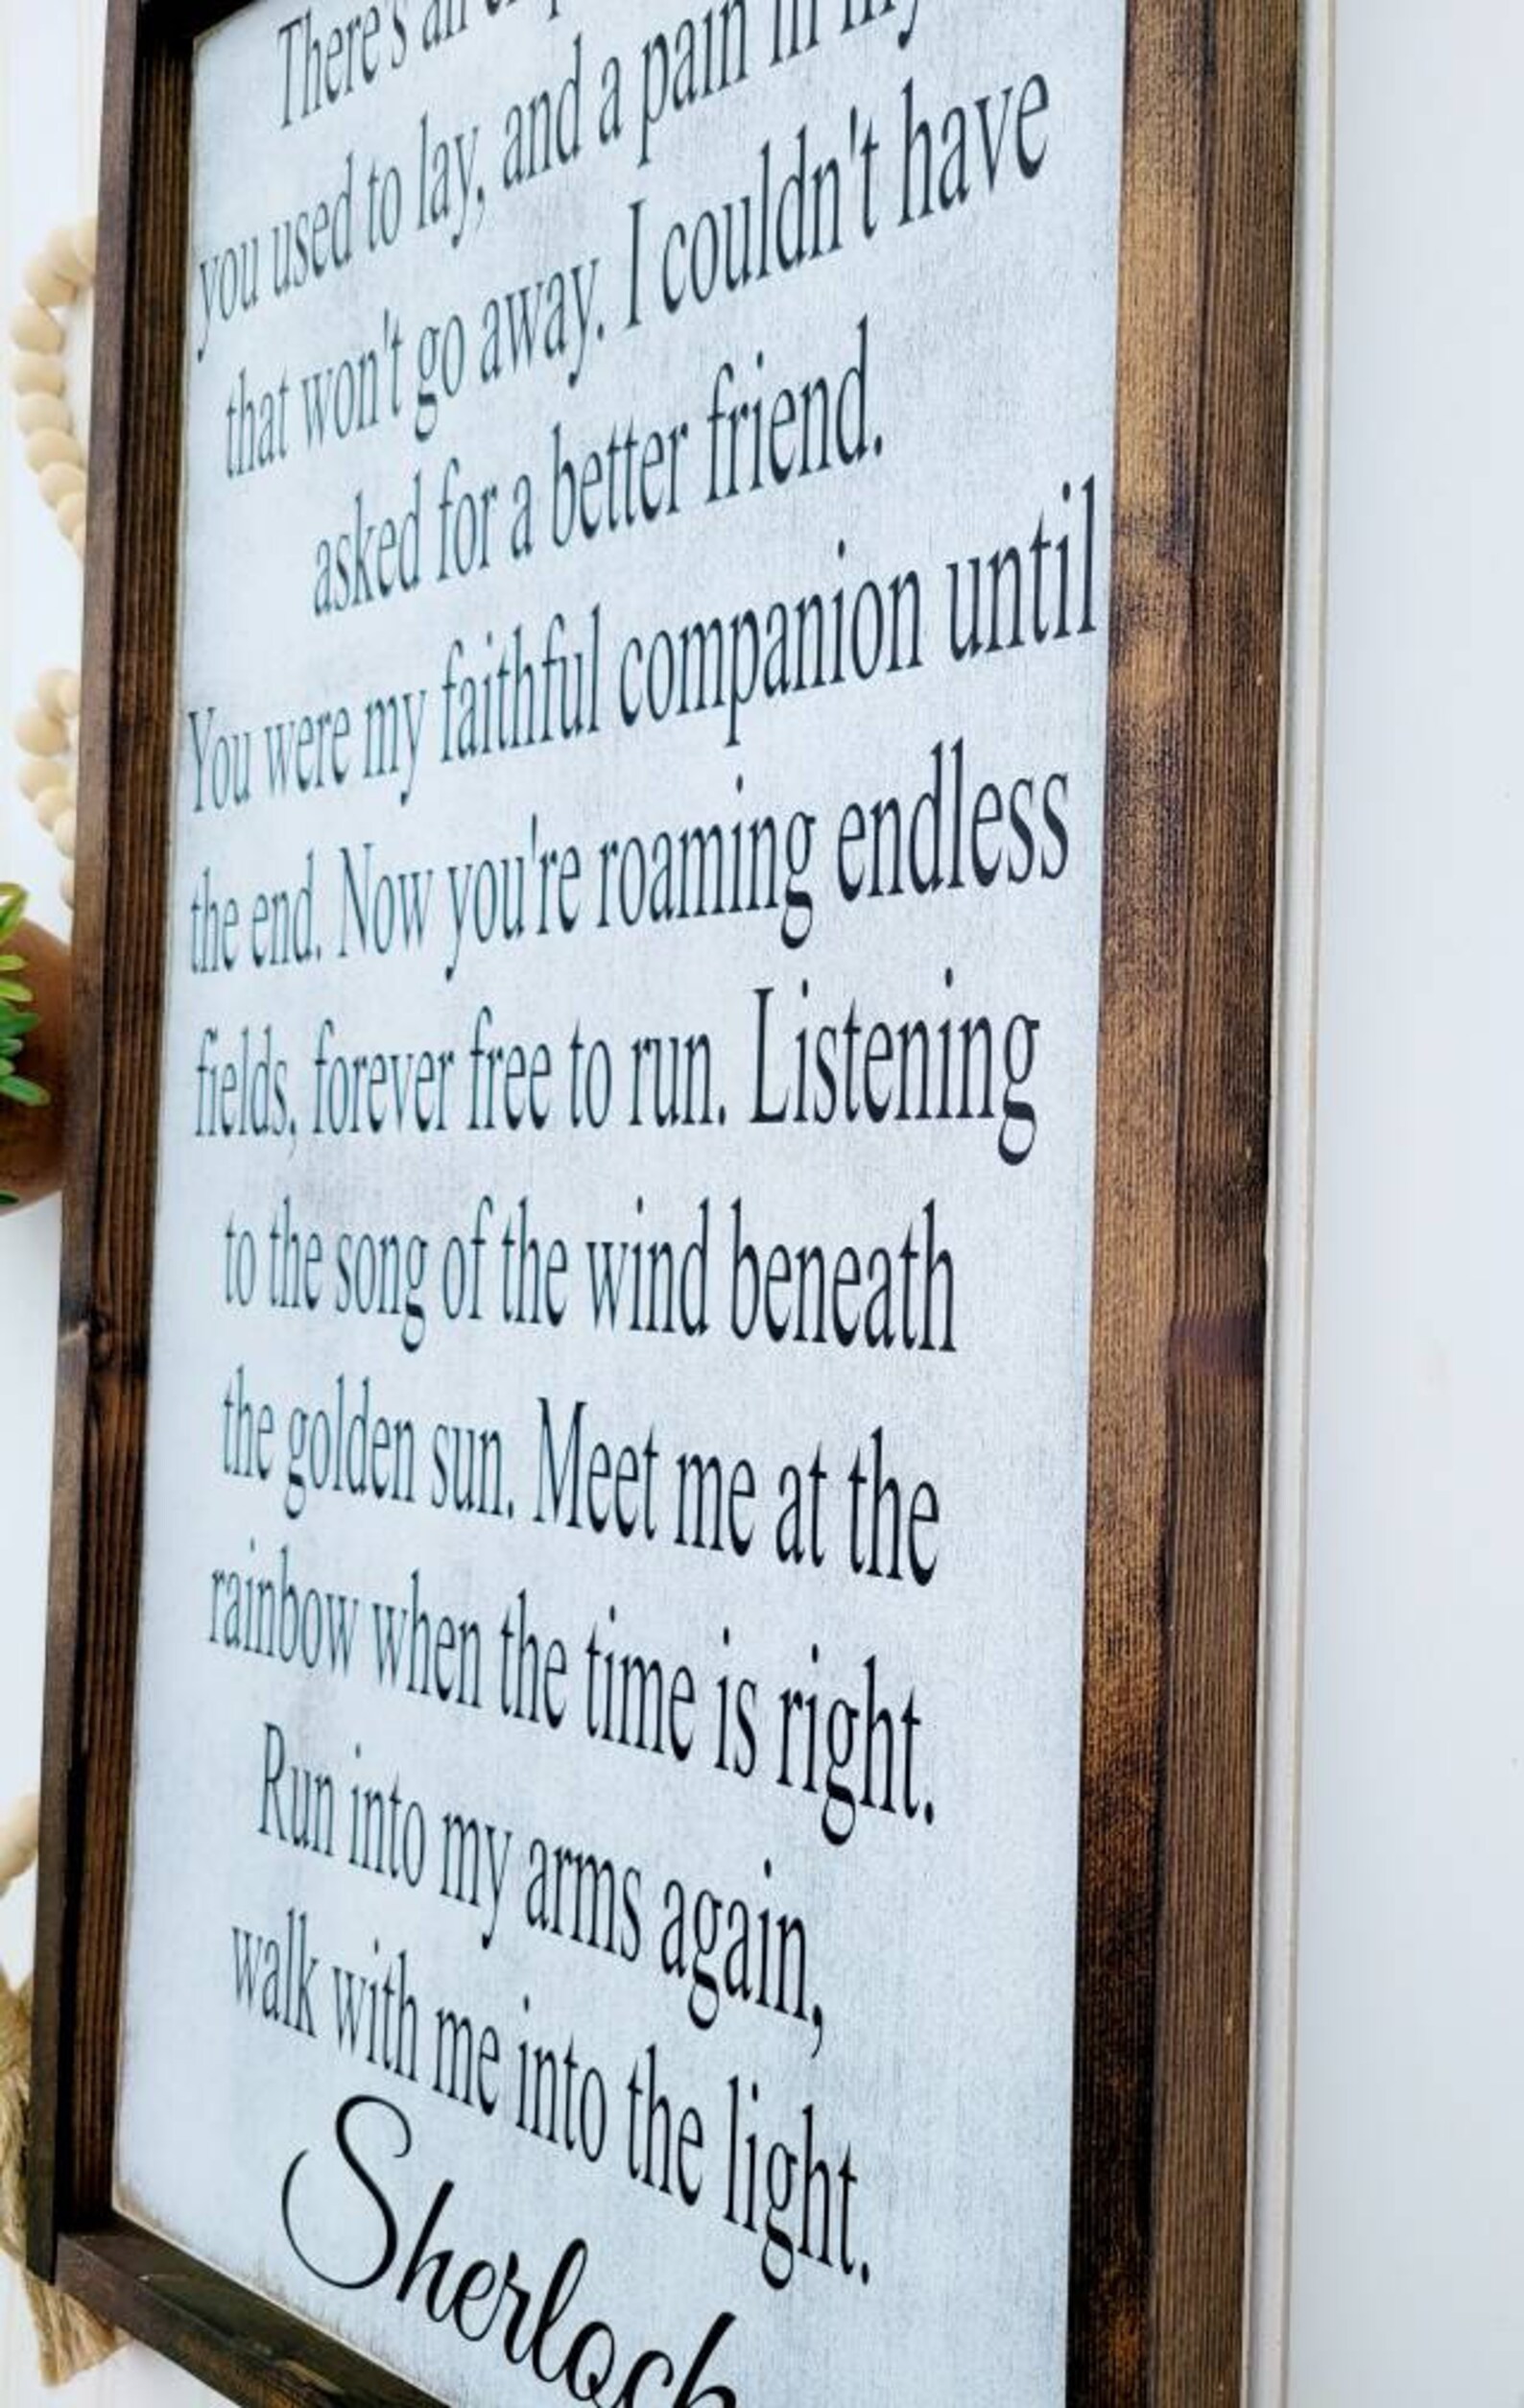 There's an
you used to lay, and a pain in my
that won't go away. I couldn't have
asked for a better friend.
You were my faithful companion until
the end. Now you're roaming endless
fields, forever free to run. Listening
to the song of the wind beneath
the golden sun. Meet me at the
rainbow when the time is right.
Run into my arms again,
walk with me into the light.
Sherlock